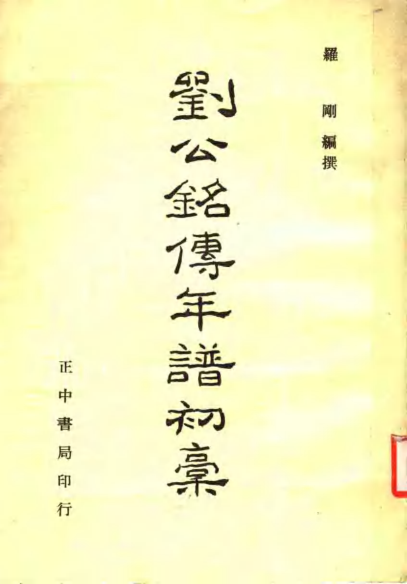 羅剛編撰
劉公銘傳年譜初稾
正中書局印行